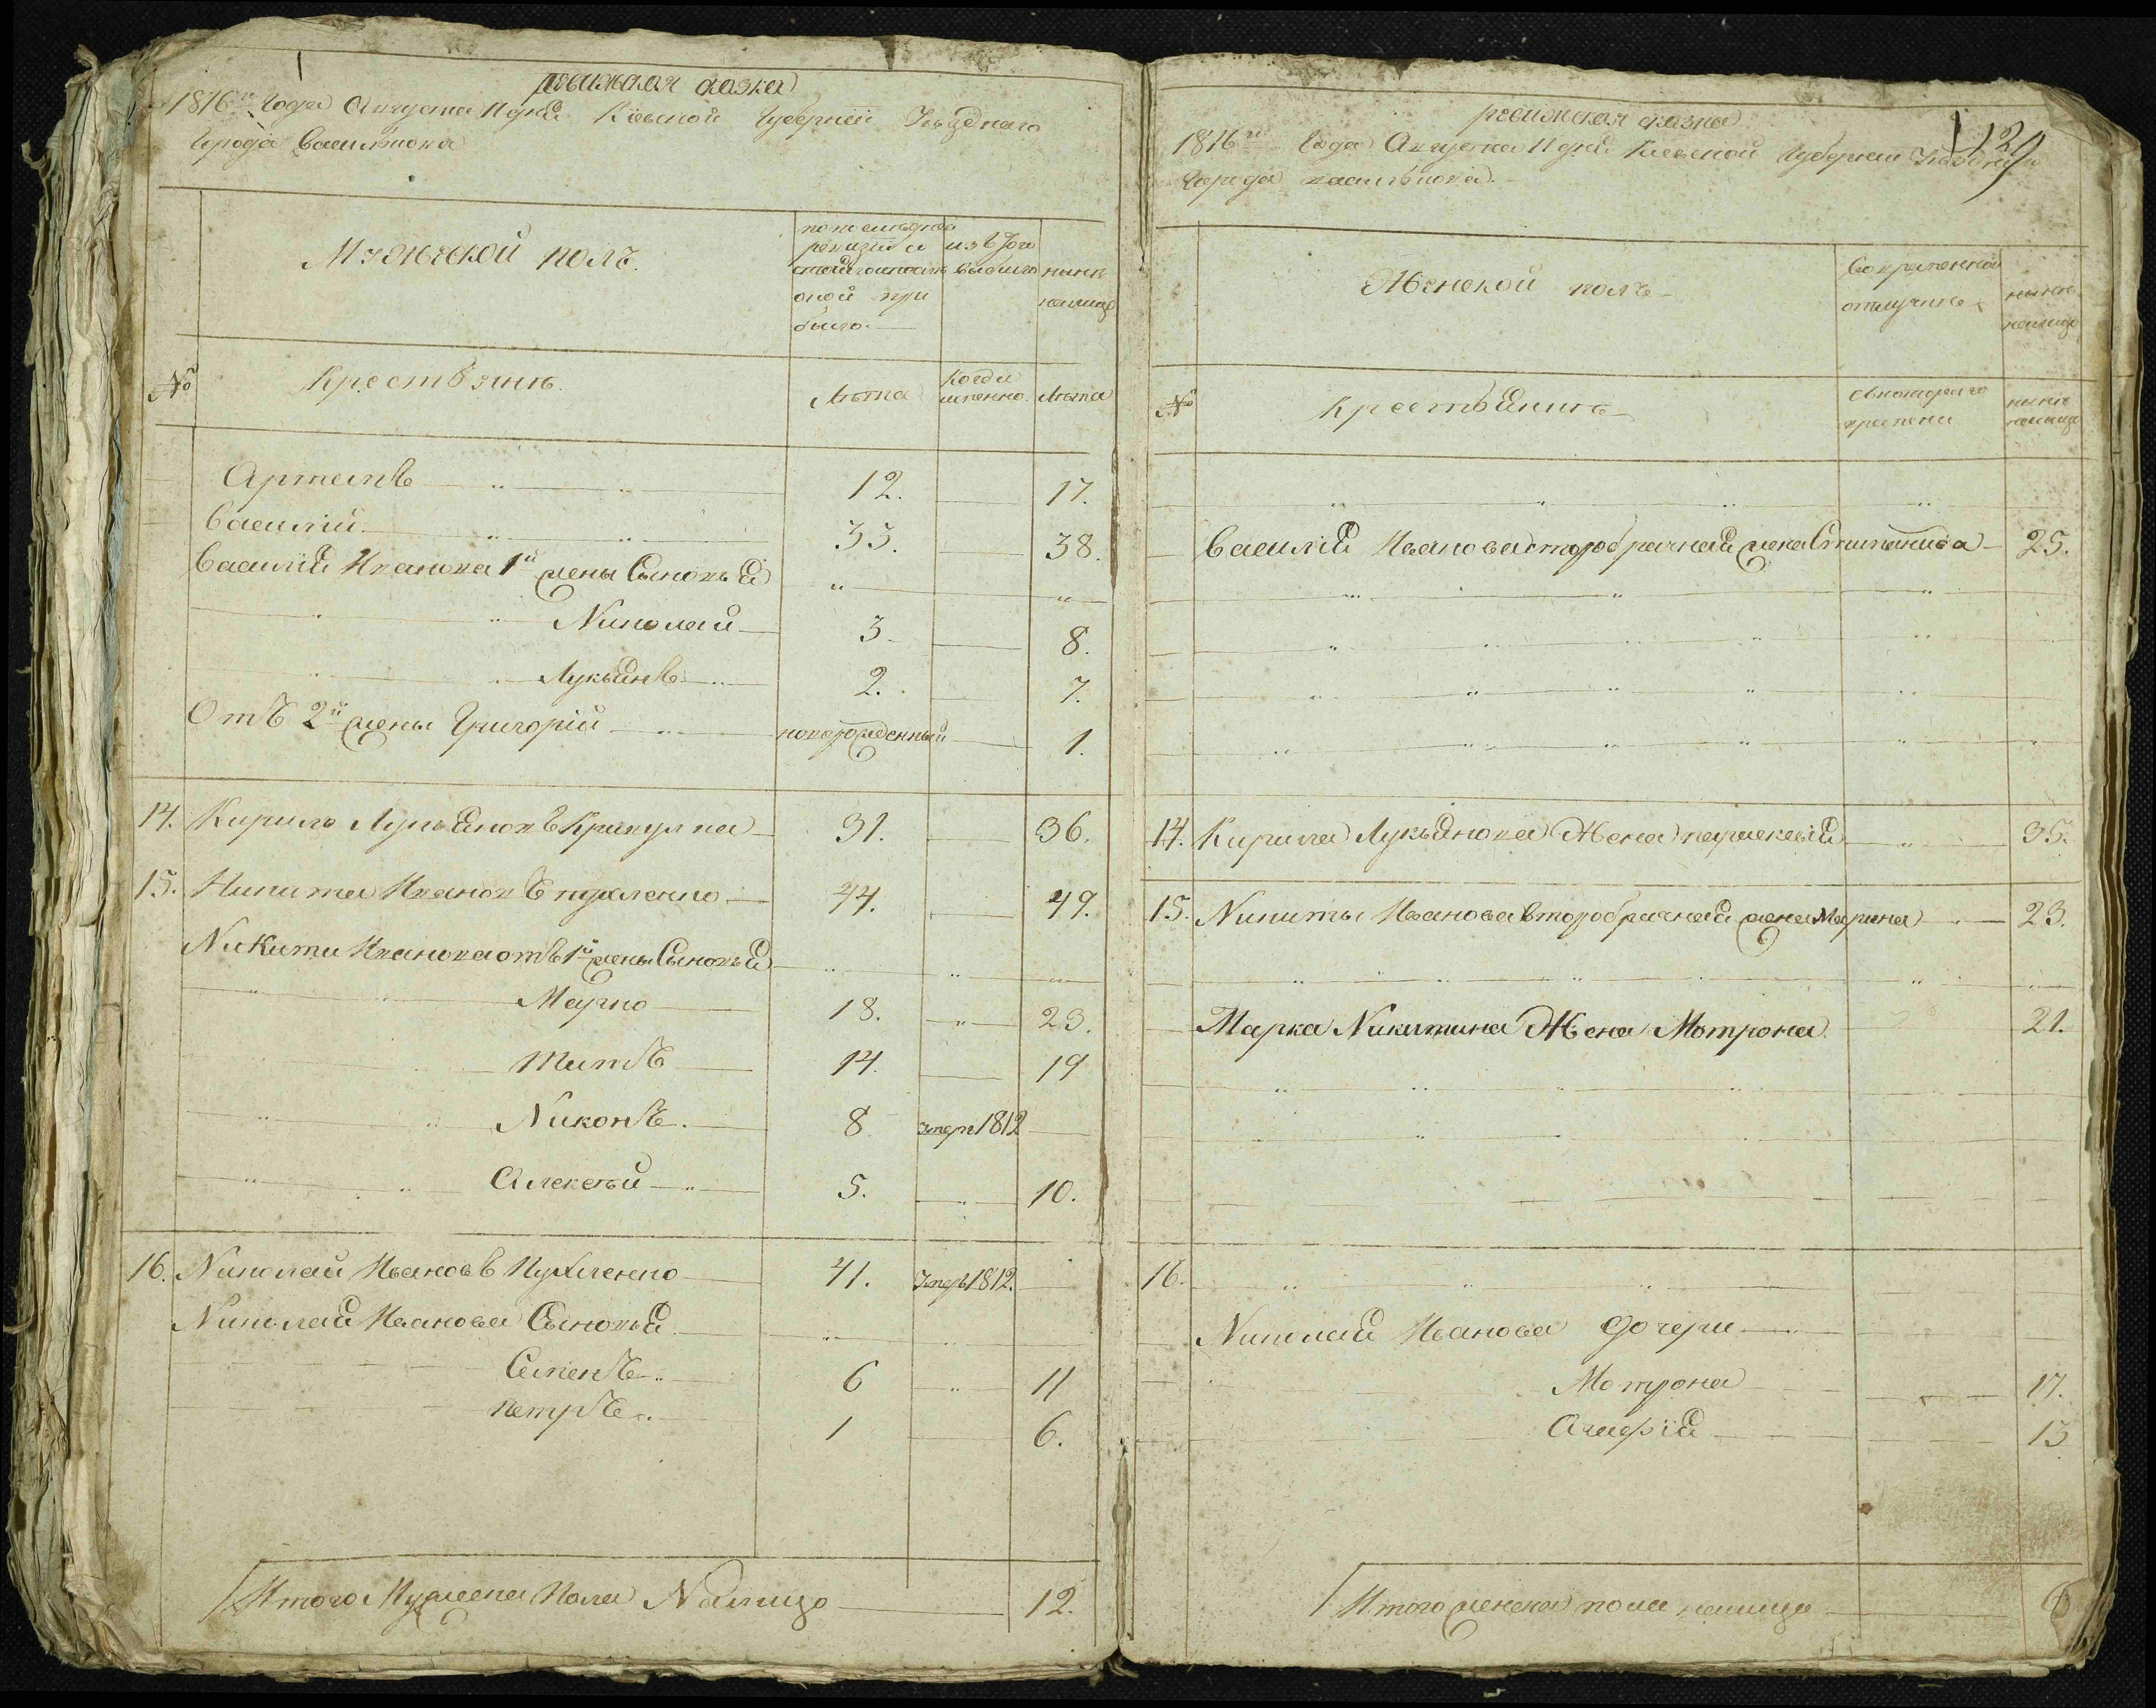 ревижская сказка
1816го Года Августа 11 дня Киевской Губернии Уѣзднаго
Города Василькова
Мужеской полъ.
по последней
ревизіи и
оной при
было.
изъ того
выбыло
нынѣ
налицо
№ Крестьянинъ. Лѣта когда именно. Лѣта
Артемъ 12. 17.
Василій 33. 38.
Василія Иванова 1й жены Сыновья
Николай 3 8.
Лукьянъ 2. 7.
Отъ 2й жены Григорій новорожденный 1.
14. Кирило Лукьяновъ 31. 36.
15. Никита Ивановъ 44. 49.
Никиты Иванова отъ 1й жены Сыновья
Марко 18. 23.
Титъ 14. 19
Никонъ. 8 умеръ 1812
Алексѣй 5. 10.
16. Николай Ивановъ 41. умеръ 1812.
Николая Иванова Сыновья
Семенъ 6 11
Петръ 1 6.
Итого Мужеска Пола Налицо 12.
129
ревижская сказка
1816го Года Августа 11 дня Киевской Губернии Уѣзднаго
Города Василькова.
Женской полъ
Во временной
отлучкѣ
нынѣ
налицо
№ Крестьянинъ
съ котораго
времени
нынѣ
налицо
Василія Иванова второбрачная жена Степанида 25.
14. Кирила Лукьянова Жена парасквія 35.
15. Никиты Иванова второбрачная жена Марина 23.
Марка Никитина Жена Мотрона 21.
16.
Николая Иванова дочери
Мотрона 17.
Агафія 13
Итого женска пола налицо 6